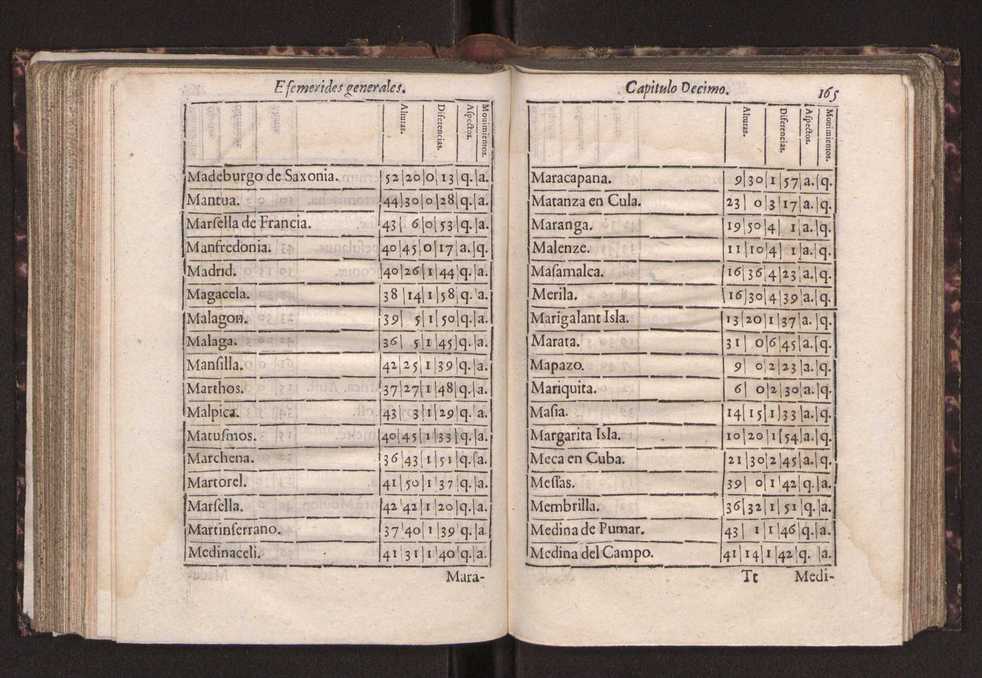 Efemerides generales.
Alturas. Diferencias. Aspectos. Mouimientos.
Madeburgo de Saxonia. 52 20 0 13 q. a.
Mantua. 44 30 0 28 q. a.
Marsella de Francia. 43 6 0 53 q. a.
Manfredonia. 40 45 0 17 a. q.
Madrid. 40 26 1 44 q. a.
Magacela. 38 14 1 58 q. a.
Malagon. 39 5 1 50 q. a.
Malaga. 36 5 1 45 q. a.
Mansilla. 42 25 1 39 q. a.
Marthos. 37 27 1 48 q. a.
Malpica. 43 3 1 29 q. a.
Matusmos. 40 45 1 33 q. a.
Marchena. 36 43 1 51 q. a.
Martorel. 41 50 1 37 q. a.
Marsella. 42 42 1 20 q. a.
Martinserrano. 37 40 1 39 q. a.
Medinaceli. 41 31 1 40 q. a.
Mara-
Capitulo Decimo. 165
Alturas. Diferencias. Aspectos. Mouimientos.
Maracapana. 9 30 1 57 a. q.
Matanza en Cula. 23 0 3 17 a. q.
Maranga. 19 50 4 1 a. q.
Malenze. 11 10 4 1 a. q.
Masamalca. 16 36 4 23 a. q.
Merila. 16 30 4 39 a. q.
Marigalant Isla. 13 20 1 37 a. q.
Marata. 31 0 6 45 a. q.
Mapazo. 9 0 2 23 a. q.
Mariquita. 6 0 2 30 a. q.
Masia. 14 15 1 33 a. q.
Margarita Isla. 10 20 1 54 a. q.
Meca en Cuba. 21 30 2 45 a. q.
Messas. 39 0 1 42 q. a.
Membrilla. 36 32 1 51 q. a.
Medina de Pumar. 43 1 1 46 q. a.
Medina del Campo. 41 14 1 42 q. a.
Tt Medi-